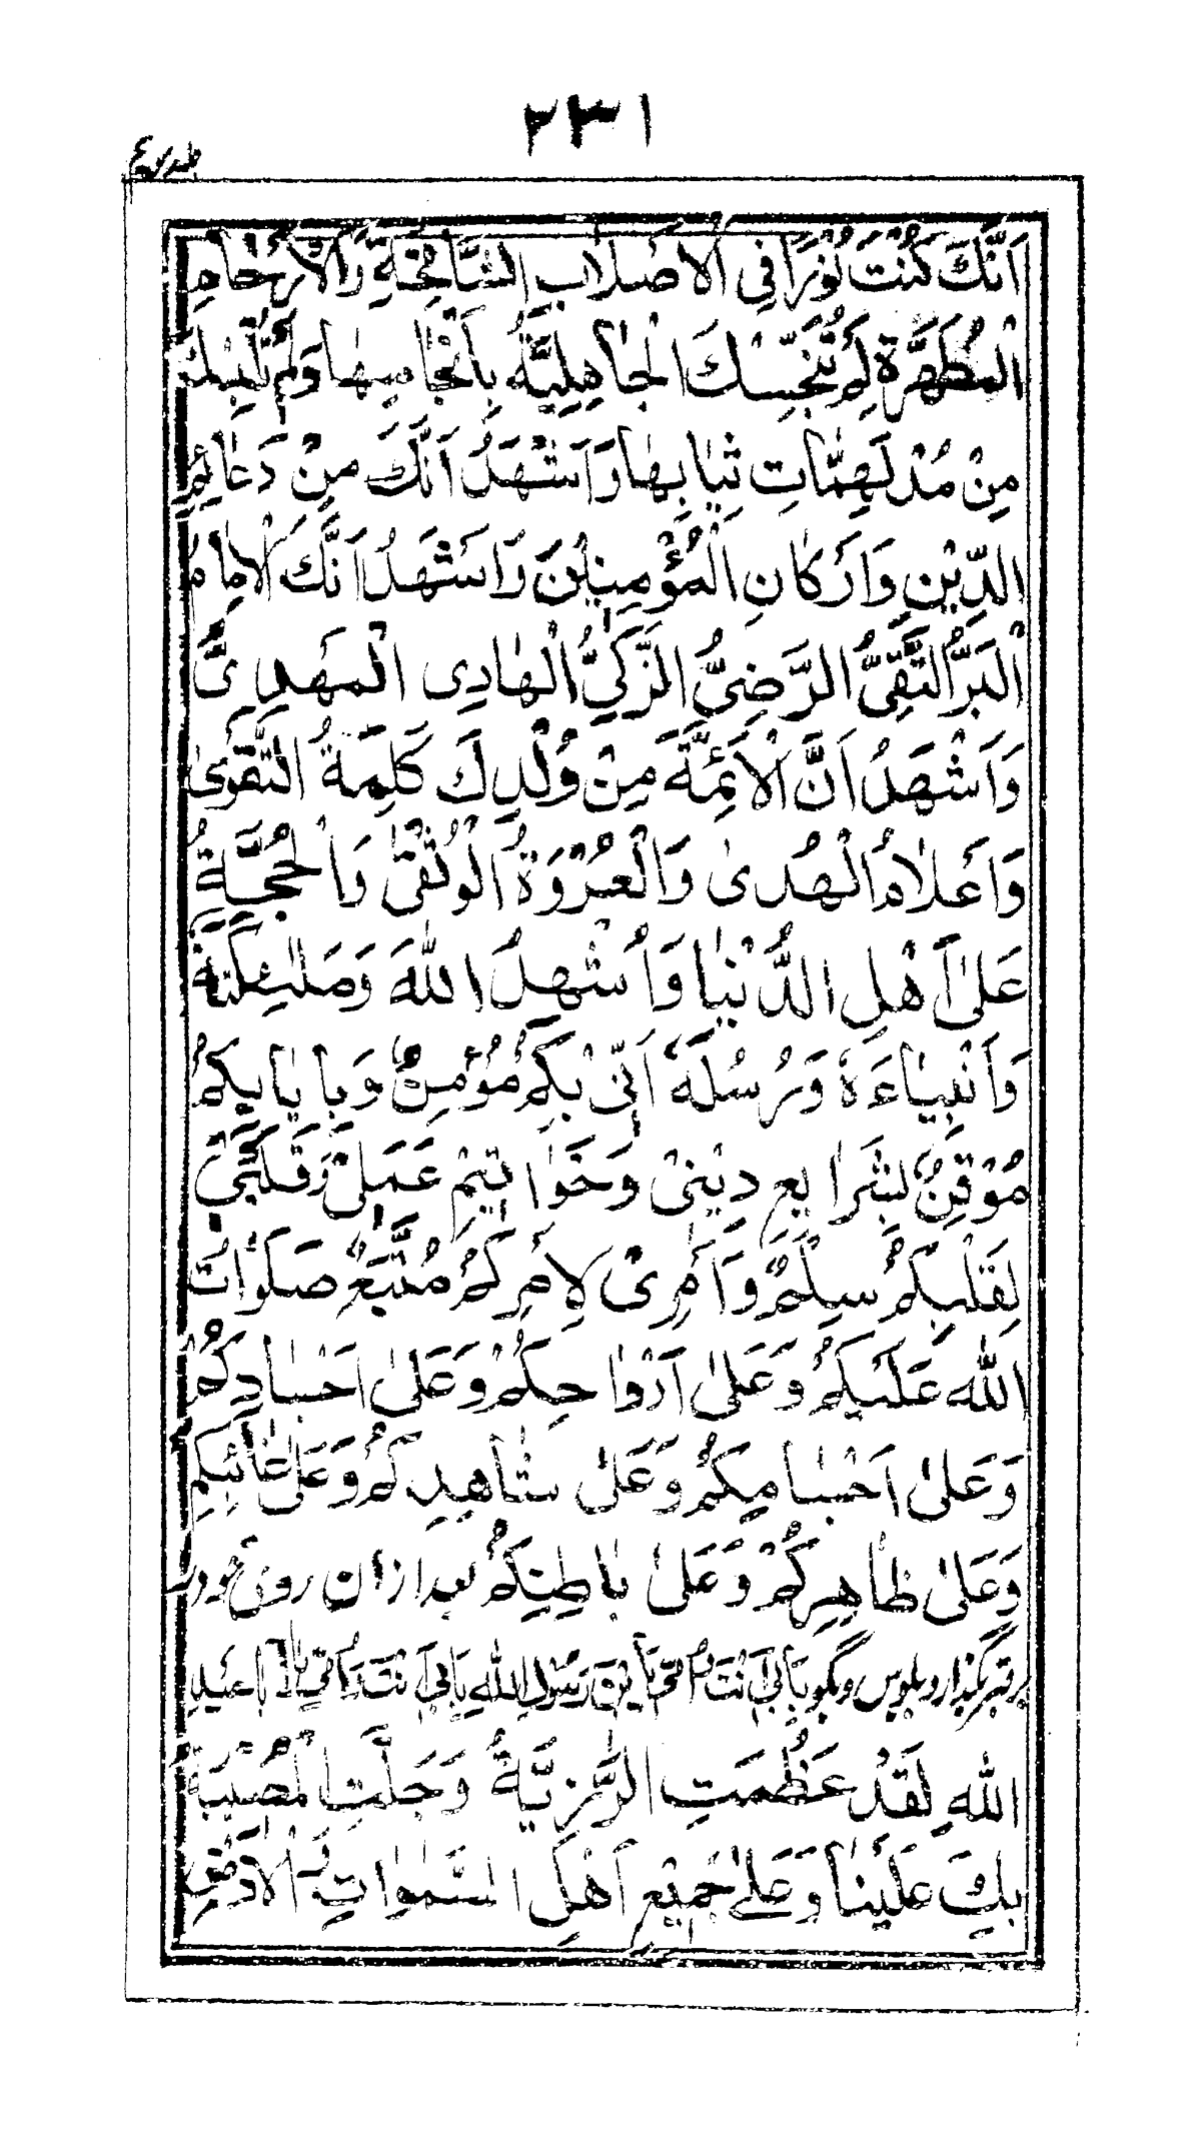 ۲۳۱
اَنَّكَ كُنْتَ نُوْرًا فِي الْاَصْلَابِ الشَّامِخَةِ وَالْاَرْحَامِ
الْمُطَهَّرَةِ لَمْ تُنَجِّسْكَ الْجَاهِلِيَّةُ بِاَنْجَاسِهَا وَلَمْ تُلْبِسْكَ
مِنْ مُدْلَهِمَّاتِ ثِيَابِهَا وَاَشْهَدُ اَنَّكَ مِنْ دَعَائِمِ
الدِّيْنِ وَاَرْكَانِ الْمُؤْمِنِيْنَ وَاَشْهَدُ اَنَّكَ الْاِمَامُ
الْبَرُّ التَّقِىُّ الرَّضِىُّ الزَّكِىُّ الْهَادِى الْمَهْدِىُّ
وَاَشْهَدُ اَنَّ الْاَئِمَّةَ مِنْ وُلْدِكَ كَلِمَةُ التَّقْوٰى
وَاَعْلَامُ الْهُدٰى وَالْعُرْوَةُ الْوُثْقٰى وَالْحُجَّةُ
عَلٰى اَهْلِ الدُّنْيَا وَاُشْهِدُ اللهَ وَمَلٰئِكَتَهٗ
وَاَنْبِيَاءَهٗ وَرُسُلَهٗ اَنِّى بِكُمْ مُؤْمِنٌ وَبِاِيَابِكُمْ
مُوْقِنٌ بِشَرَايِعِ دِيْنِىْ وَخَوَاتِيْمِ عَمَلِىْ وَقَلْبِىْ
لِقَلْبِكُمْ سِلْمٌ وَاَمْرِىْ لِاَمْرِكُمْ مُتَّبِعٌ صَلَوَاتُ
اللهِ عَلَيْكُمْ وَعَلٰى اَرْوَاحِكُمْ وَعَلٰى اَجْسَادِكُمْ
وَعَلٰى اَجْسَامِكُمْ وَعَلٰى شَاهِدِكُمْ وَعَلٰى غَائِبِكُمْ
وَعَلٰى ظَاهِرِكُمْ وَعَلٰى بَاطِنِكُمْ بعد ازان روى خود را
بر قبر بگذار و ببوس و بگو بِاَبِىْ اَنْتَ وَاُمِّىْ يَابْنَ رَسُوْلِ اللهِ بِاَبِىْ اَنْتَ وَاُمِّىْ يَا اَبَا عَبْدِ
اللهِ لَقَدْ عَظُمَتِ الرَّزِيَّةُ وَجَلَّتِ الْمُصِيْبَةُ
بِكَ عَلَيْنَا وَعَلٰى جَمِيْعِ اَهْلِ السَّمٰوَاتِ وَالْاَرْضِ